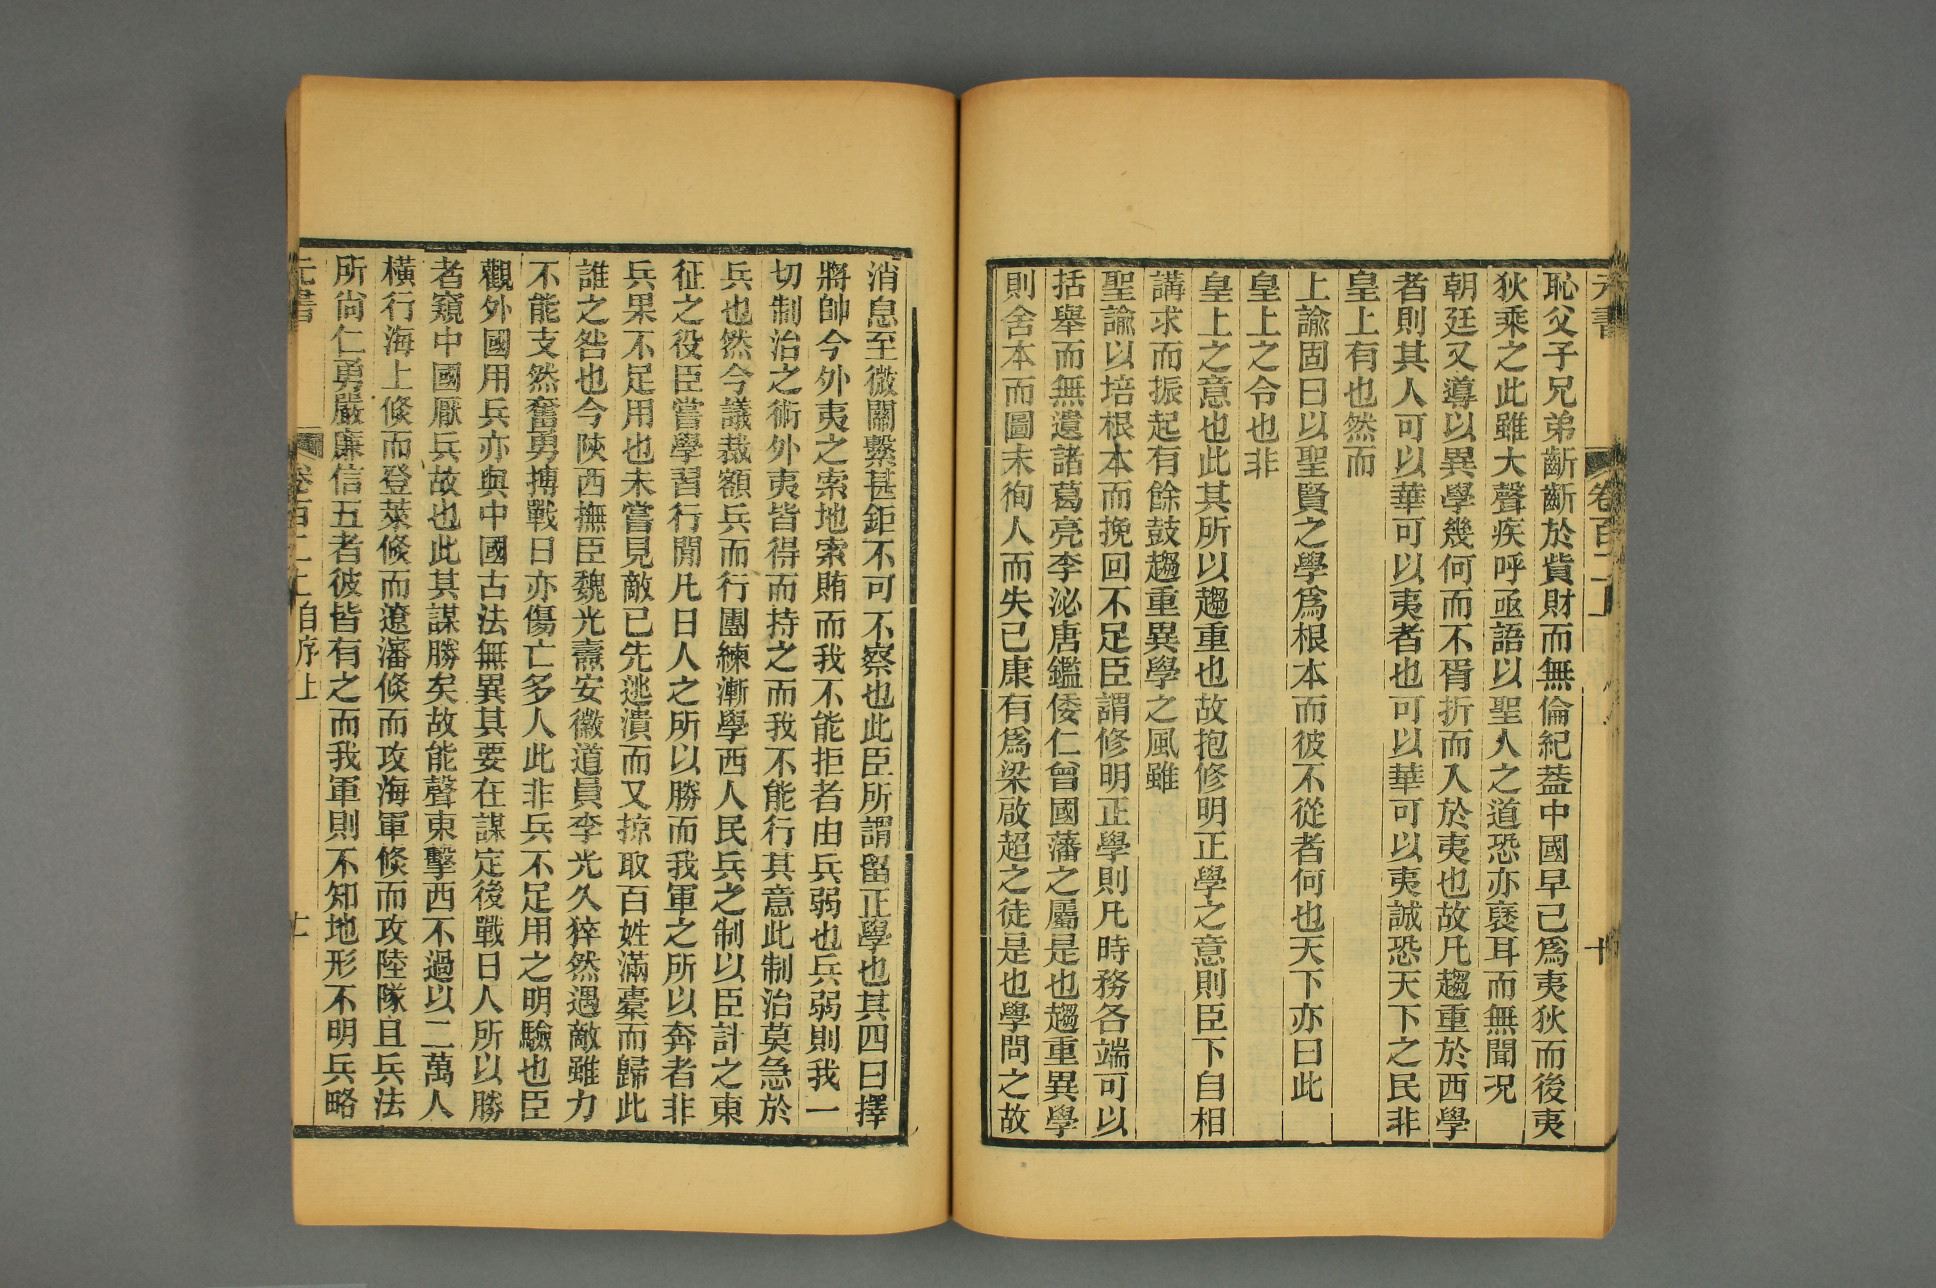 元書 卷百二上 十
恥父子兄弟齗齗於貲財而無倫紀葢中國早已爲夷狄而後夷
狄乘之此雖大聲疾呼亟語以聖人之道恐亦裦耳而無聞況
朝廷又導以異學幾何而不胥折而入於夷也故凡趨重於西學
者則其人可以華可以夷者也可以華可以夷誠恐天下之民非
皇上有也然而
上諭固曰以聖賢之學爲根本而彼不從者何也天下亦曰此
皇上之令也非
皇上之意也此其所以趨重也故抱修明正學之意則臣下自相
講求而振起有餘鼓趨重異學之風雖
聖諭以培根本而挽回不足臣謂修明正學則凡時務各端可以
括舉而無遺諸葛亮李泌唐鑑倭仁曾國藩之屬是也趨重異學
則舍本而圖末徇人而失已康有爲梁啟超之徒是也學問之故
消息至微關繫甚鉅不可不察也此臣所謂留正學也其四曰擇
將帥今外夷之索地索賄而我不能拒者由兵弱也兵弱則我一
切制治之術外夷皆得而持之而我不能行其意此制治莫急於
兵也然今議裁額兵而行團練漸學西人民兵之制以臣計之東
征之役臣嘗學習行閒凡日人之所以勝而我軍之所以奔者非
兵果不足用也未嘗見敵已先逃潰而又掠取百姓滿橐而歸此
誰之咎也今陝西撫臣魏光燾安徽道員李光久猝然遇敵雖力
不能支然奮勇搏戰日亦傷亡多人此非兵不足用之明驗也臣
觀外國用兵亦與中國古法無異其要在謀定後戰日人所以勝
者窺中國厭兵故也此其謀勝矣故能聲東擊西不過以二萬人
橫行海上倏而登萊倏而遼瀋倏而攻海軍倏而攻陸隊且兵法
所尙仁勇嚴廉信五者彼皆有之而我軍則不知地形不明兵略
元書 卷百二上 自序上 十一